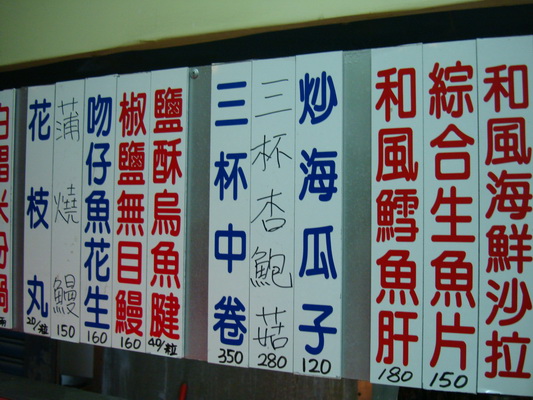 和風海鮮沙拉
綜合生魚片
150
和風鱈魚肝
180
炒海瓜子
120
三杯杏鮑菇
280
三杯中卷
350
鹽酥烏魚腱
40/粒
椒鹽無目鰻
160
吻仔魚花生
160
蒲燒鰻
150
花枝丸
20/粒
白鯧米粉鍋